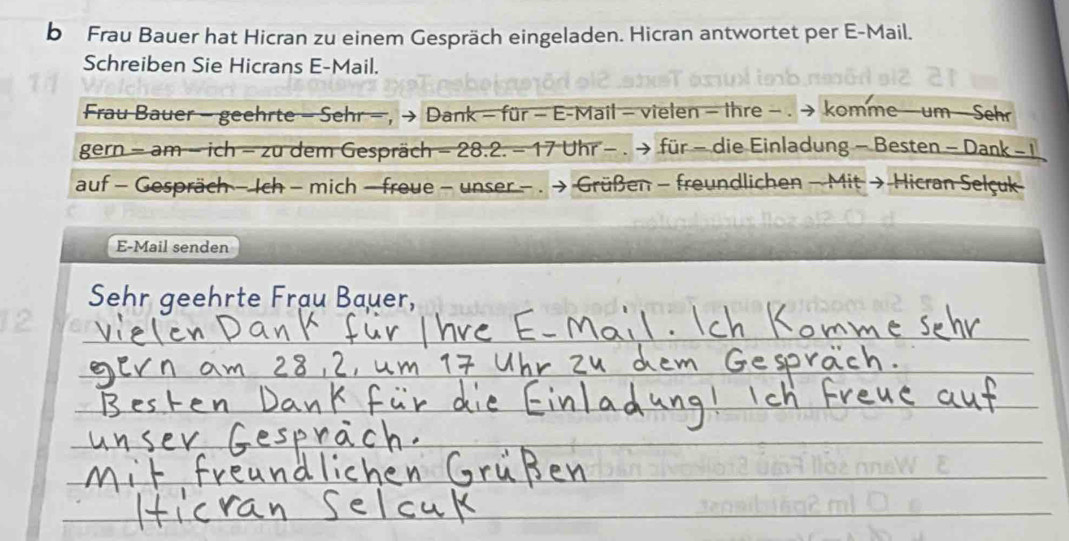 b Frau Bauer hat Hicran zu einem Gespräch eingeladen. Hicran antwortet per E-Mail.
Schreiben Sie Hicrans E-Mail.
Frau Bauer – geehrte – Sehr – , → Dank – für – E-Mail – vielen – Ihre – . → komme – um – Sehr
gern – am – ich – zu dem Gespräch – 28.2. – 17 Uhr – . → für – die Einladung – Besten – Dank – !
auf – Gespräch – Ich – mich – freue – unser – . → Grüßen – freundlichen – Mit → Hicran Selçuk
E-Mail senden
Sehr geehrte Frau Bauer,
vielen Dank für Ihre E-Mail. Ich Komme sehr
gern am 28,2, um 17 Uhr zu dem Gespräch.
Besten Dank für die Einladung! Ich Freue auf
unser Gespräch.
Mit freundlichen Grüßen
Hicran Selcuk